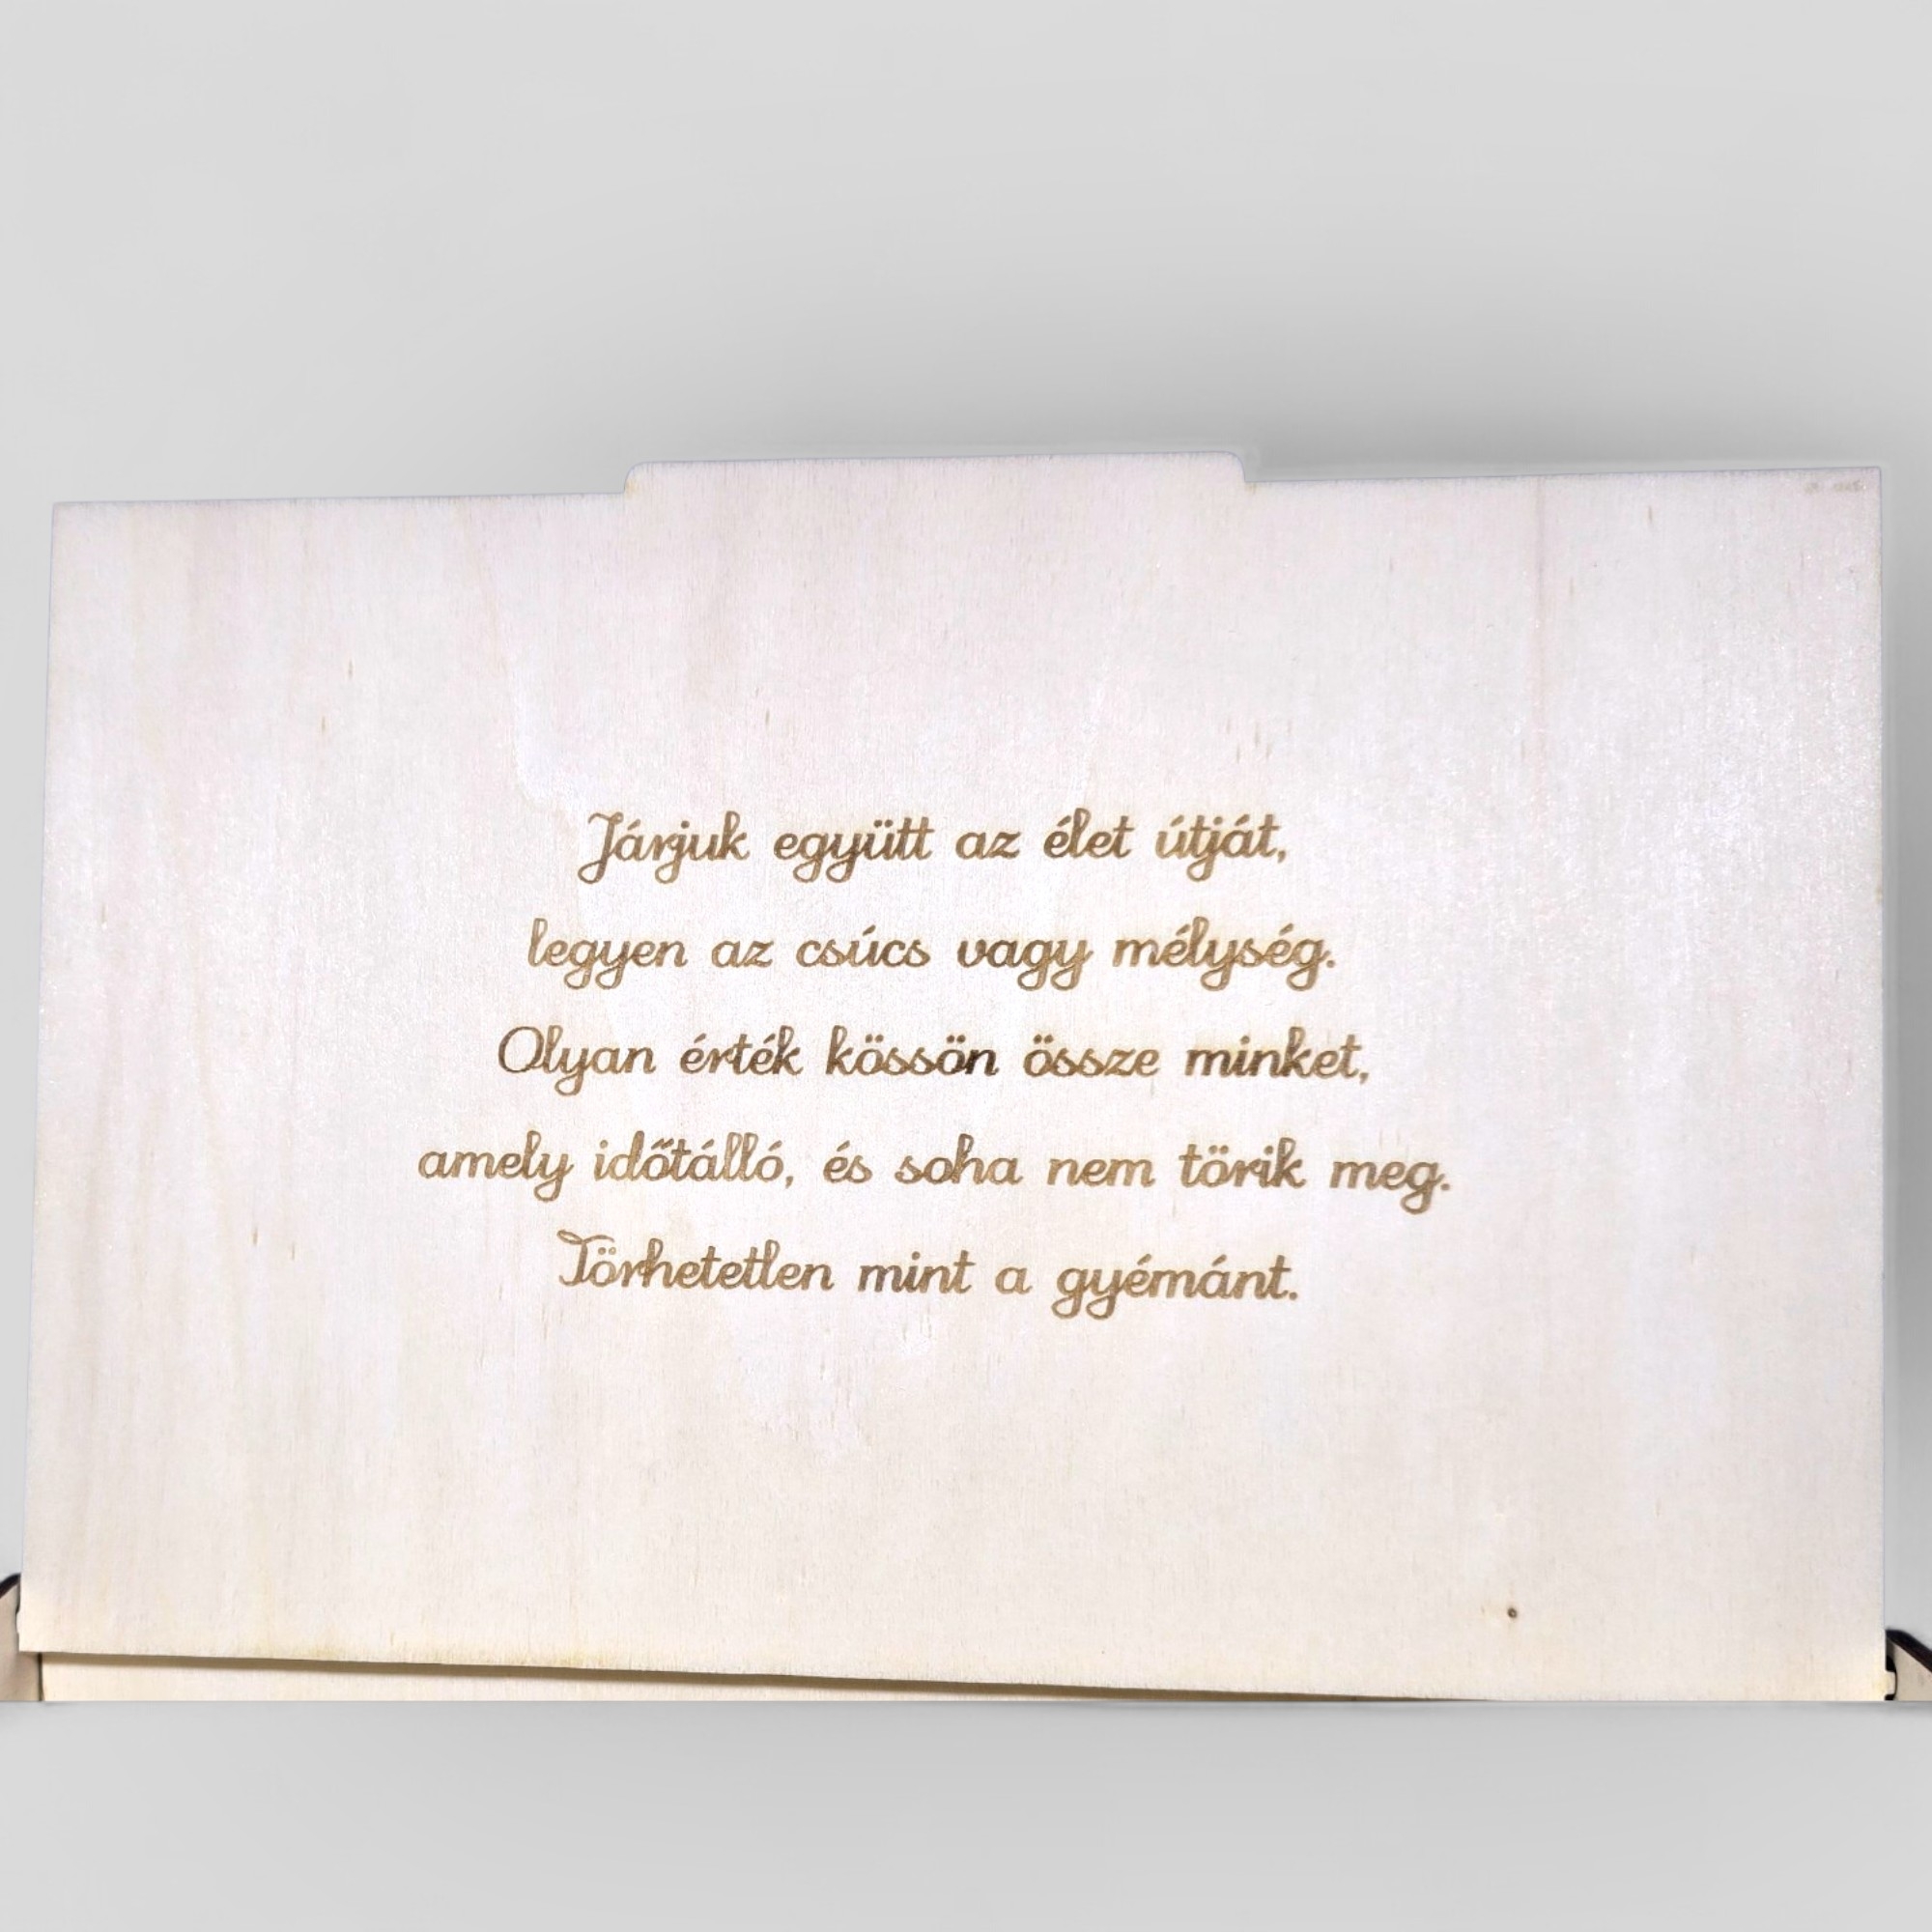 Járjuk együtt az élet útját,
legyen az csúcs vagy mélység.
Olyan érték kössön össze minket,
amely időtálló, és soha nem törik meg.
Törhetetlen mint a gyémánt.